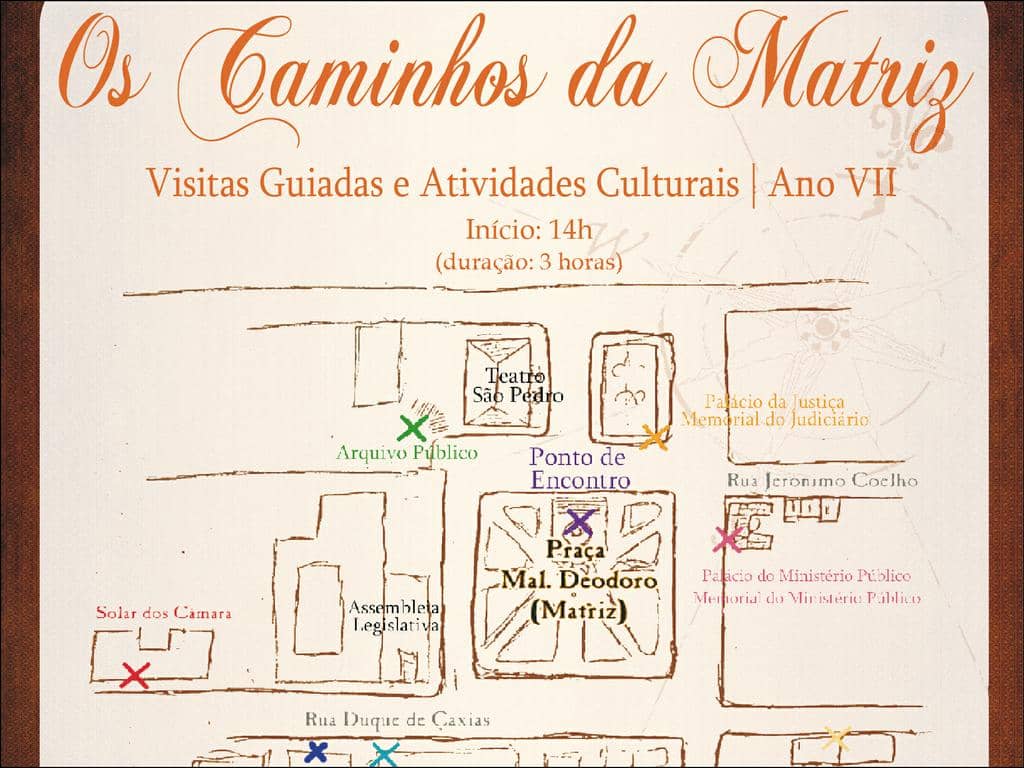 Os Caminhos da Matriz
Visitas Guiadas e Atividades Culturais | Ano VII
Início: 14h
(duração: 3 horas)
Teatro
São Pedro
Palácio da Justiça
Memorial do Judiciário
Arquivo Público
Ponto de
Encontro
Rua Jerônimo Coelho
Praça
Mal. Deodoro
(Matriz)
Palácio do Ministério Público
Memorial do Ministério Público
Assembleia
Legislativa
Solar dos Câmara
Rua Duque de Caxias